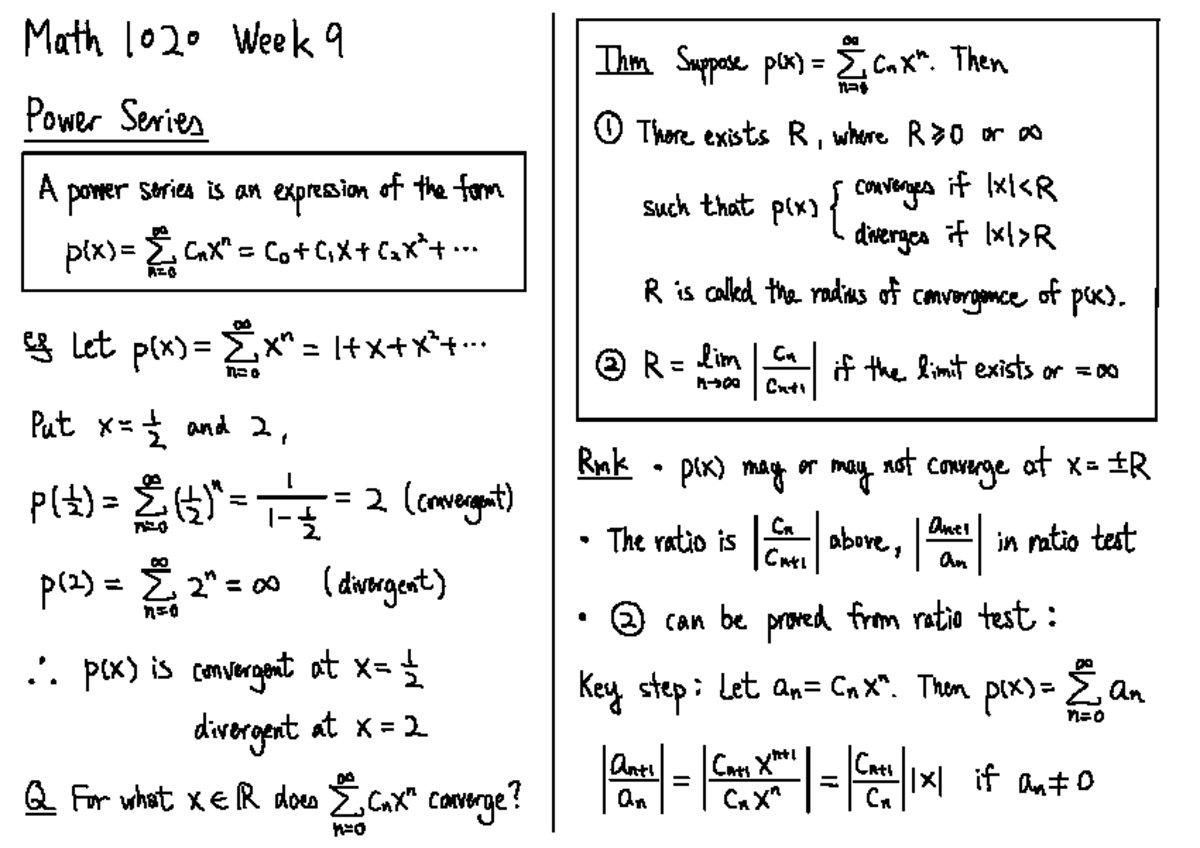 Math 1020 Week 9
Power Series
A power series is an expression of the form
p(x) = ∑_{n=0}^{∞} c_n x^n = c_0 + c_1 x + c_2 x^2 + ⋯
eg Let p(x) = ∑_{n=0}^{∞} x^n = 1 + x + x^2 + ⋯
Put x = 1/2 and 2,
p(1/2) = ∑_{n=0}^{∞} (1/2)^n = 1/(1 - 1/2) = 2 (convergent)
p(2) = ∑_{n=0}^{∞} 2^n = ∞ (divergent)
∴ p(x) is convergent at x = 1/2
divergent at x = 2
Q For what x ∈ ℝ does ∑_{n=0}^{∞} c_n x^n converge?
Thm Suppose p(x) = ∑_{n=0}^{∞} c_n x^n. Then
① There exists R, where R ≥ 0 or ∞
such that p(x) { converges if |x| < R
diverges if |x| > R
R is called the radius of convergence of p(x).
② R = lim_{n→∞} |c_n / c_{n+1}| if the limit exists or = ∞
Rmk • p(x) may or may not converge at x = ±R
• The ratio is |c_n / c_{n+1}| above, |a_{n+1} / a_n| in ratio test
• ② can be proved from ratio test :
Key step : Let a_n = c_n x^n. Then p(x) = ∑_{n=0}^{∞} a_n
|a_{n+1} / a_n| = |c_{n+1} x^{n+1} / c_n x^n| = |c_{n+1} / c_n| |x| if a_n ≠ 0